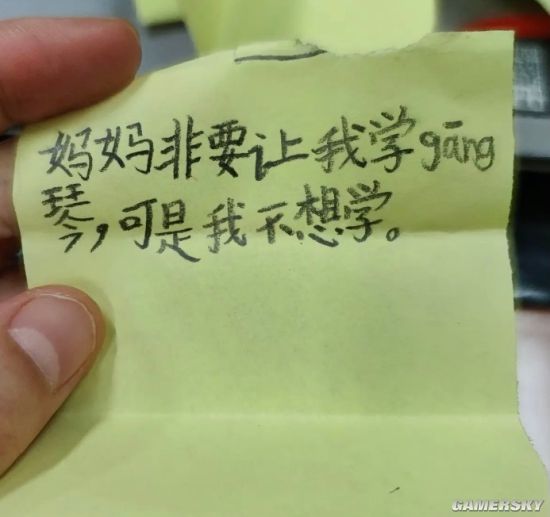 妈妈非要让我学gāng
琴,可是我不想学。
GAMERSKY